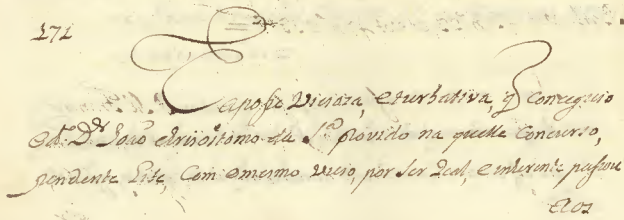 171
E a posse Vicioza, e turbativa, q̃ Conceguio
o d.º D.or João chrisostomo da S.ª provido na quelle Concurso,
pendente Lite, Com o mesmo Vicio, por Ser Real, e inherente passou